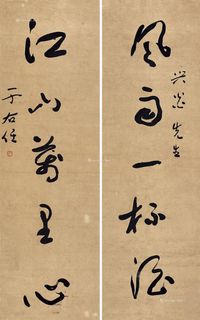 風雨一杯酒
先生
江山萬里心
于右任